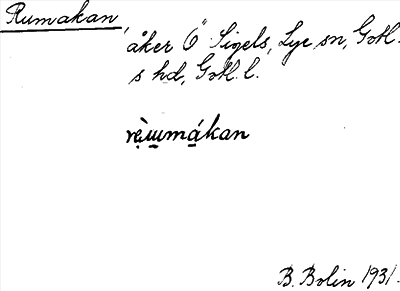 Rumakan,
åker Ö Sigels, Lye sn, Gotl.
s hd, Gotl. l.
rè̤ɯmákan
B. Bolin 1931.